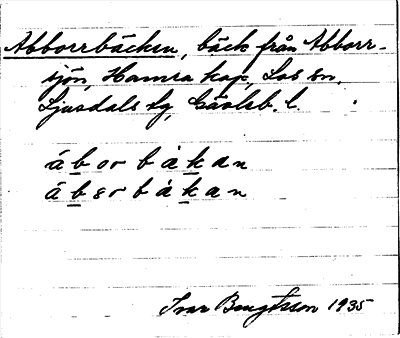 Abborrbäcken, bäck från Abborr-
sjön, Hamra kap, Los sn,
Ljusdals tg, Gävleb. l.
ábor bàkan
ábɛr bàkan
Ivar Bengtsson 1935